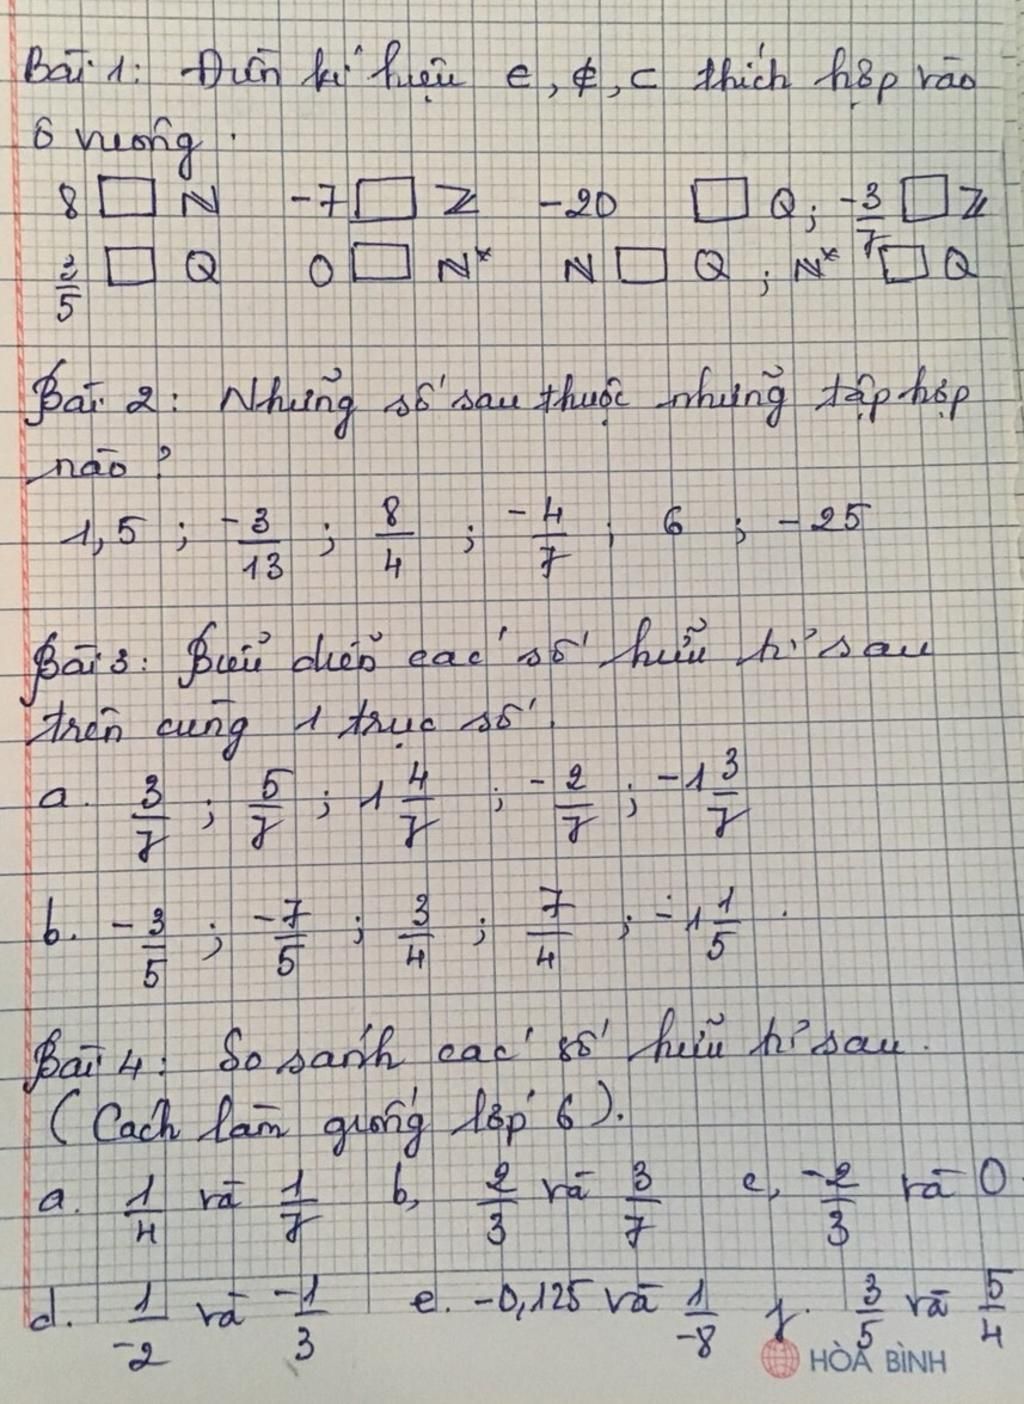 Bài 1: Điền kí hiệu ∈, ∉, ⊂ thích hợp vào
ô vuông.
8 □ N   -7 □ Z   -20 □ Q; -3/7 □ Z
2/5 □ Q   0 □ N*   N □ Q; N* □ Q
Bài 2: Những số sau thuộc những tập hợp
nào?
1,5; -3/13; 8/4; -4/7; 6; -25
Bài 3: Biểu diễn các số hữu tỉ sau
trên cùng 1 trục số.
a. 3/7; 5/7; 1 4/7; -2/7; -1 3/7
b. -3/5; -7/5; 3/4; 7/4; -1 1/5.
Bài 4: So sánh các số hữu tỉ sau.
(Cách làm giống lớp 6).
a. 1/4 và 1/7   b, 2/3 và 3/7   c, -2/3 và 0.
d. 1/-2 và -1/3   e. -0,125 và 1/-8   f. 3/5 và 5/4
HÒA BÌNH